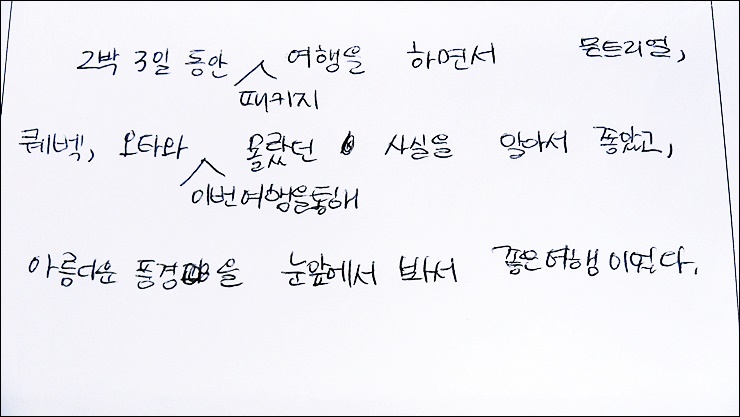 2박 3일 동안 여행을 하면서 몬트리얼,
패키지
퀘벡, 오타와 몰랐던 사실을 알아서 좋았고,
이번여행을통해
아름다운 풍경을 눈앞에서 봐서 좋은여행이었다.